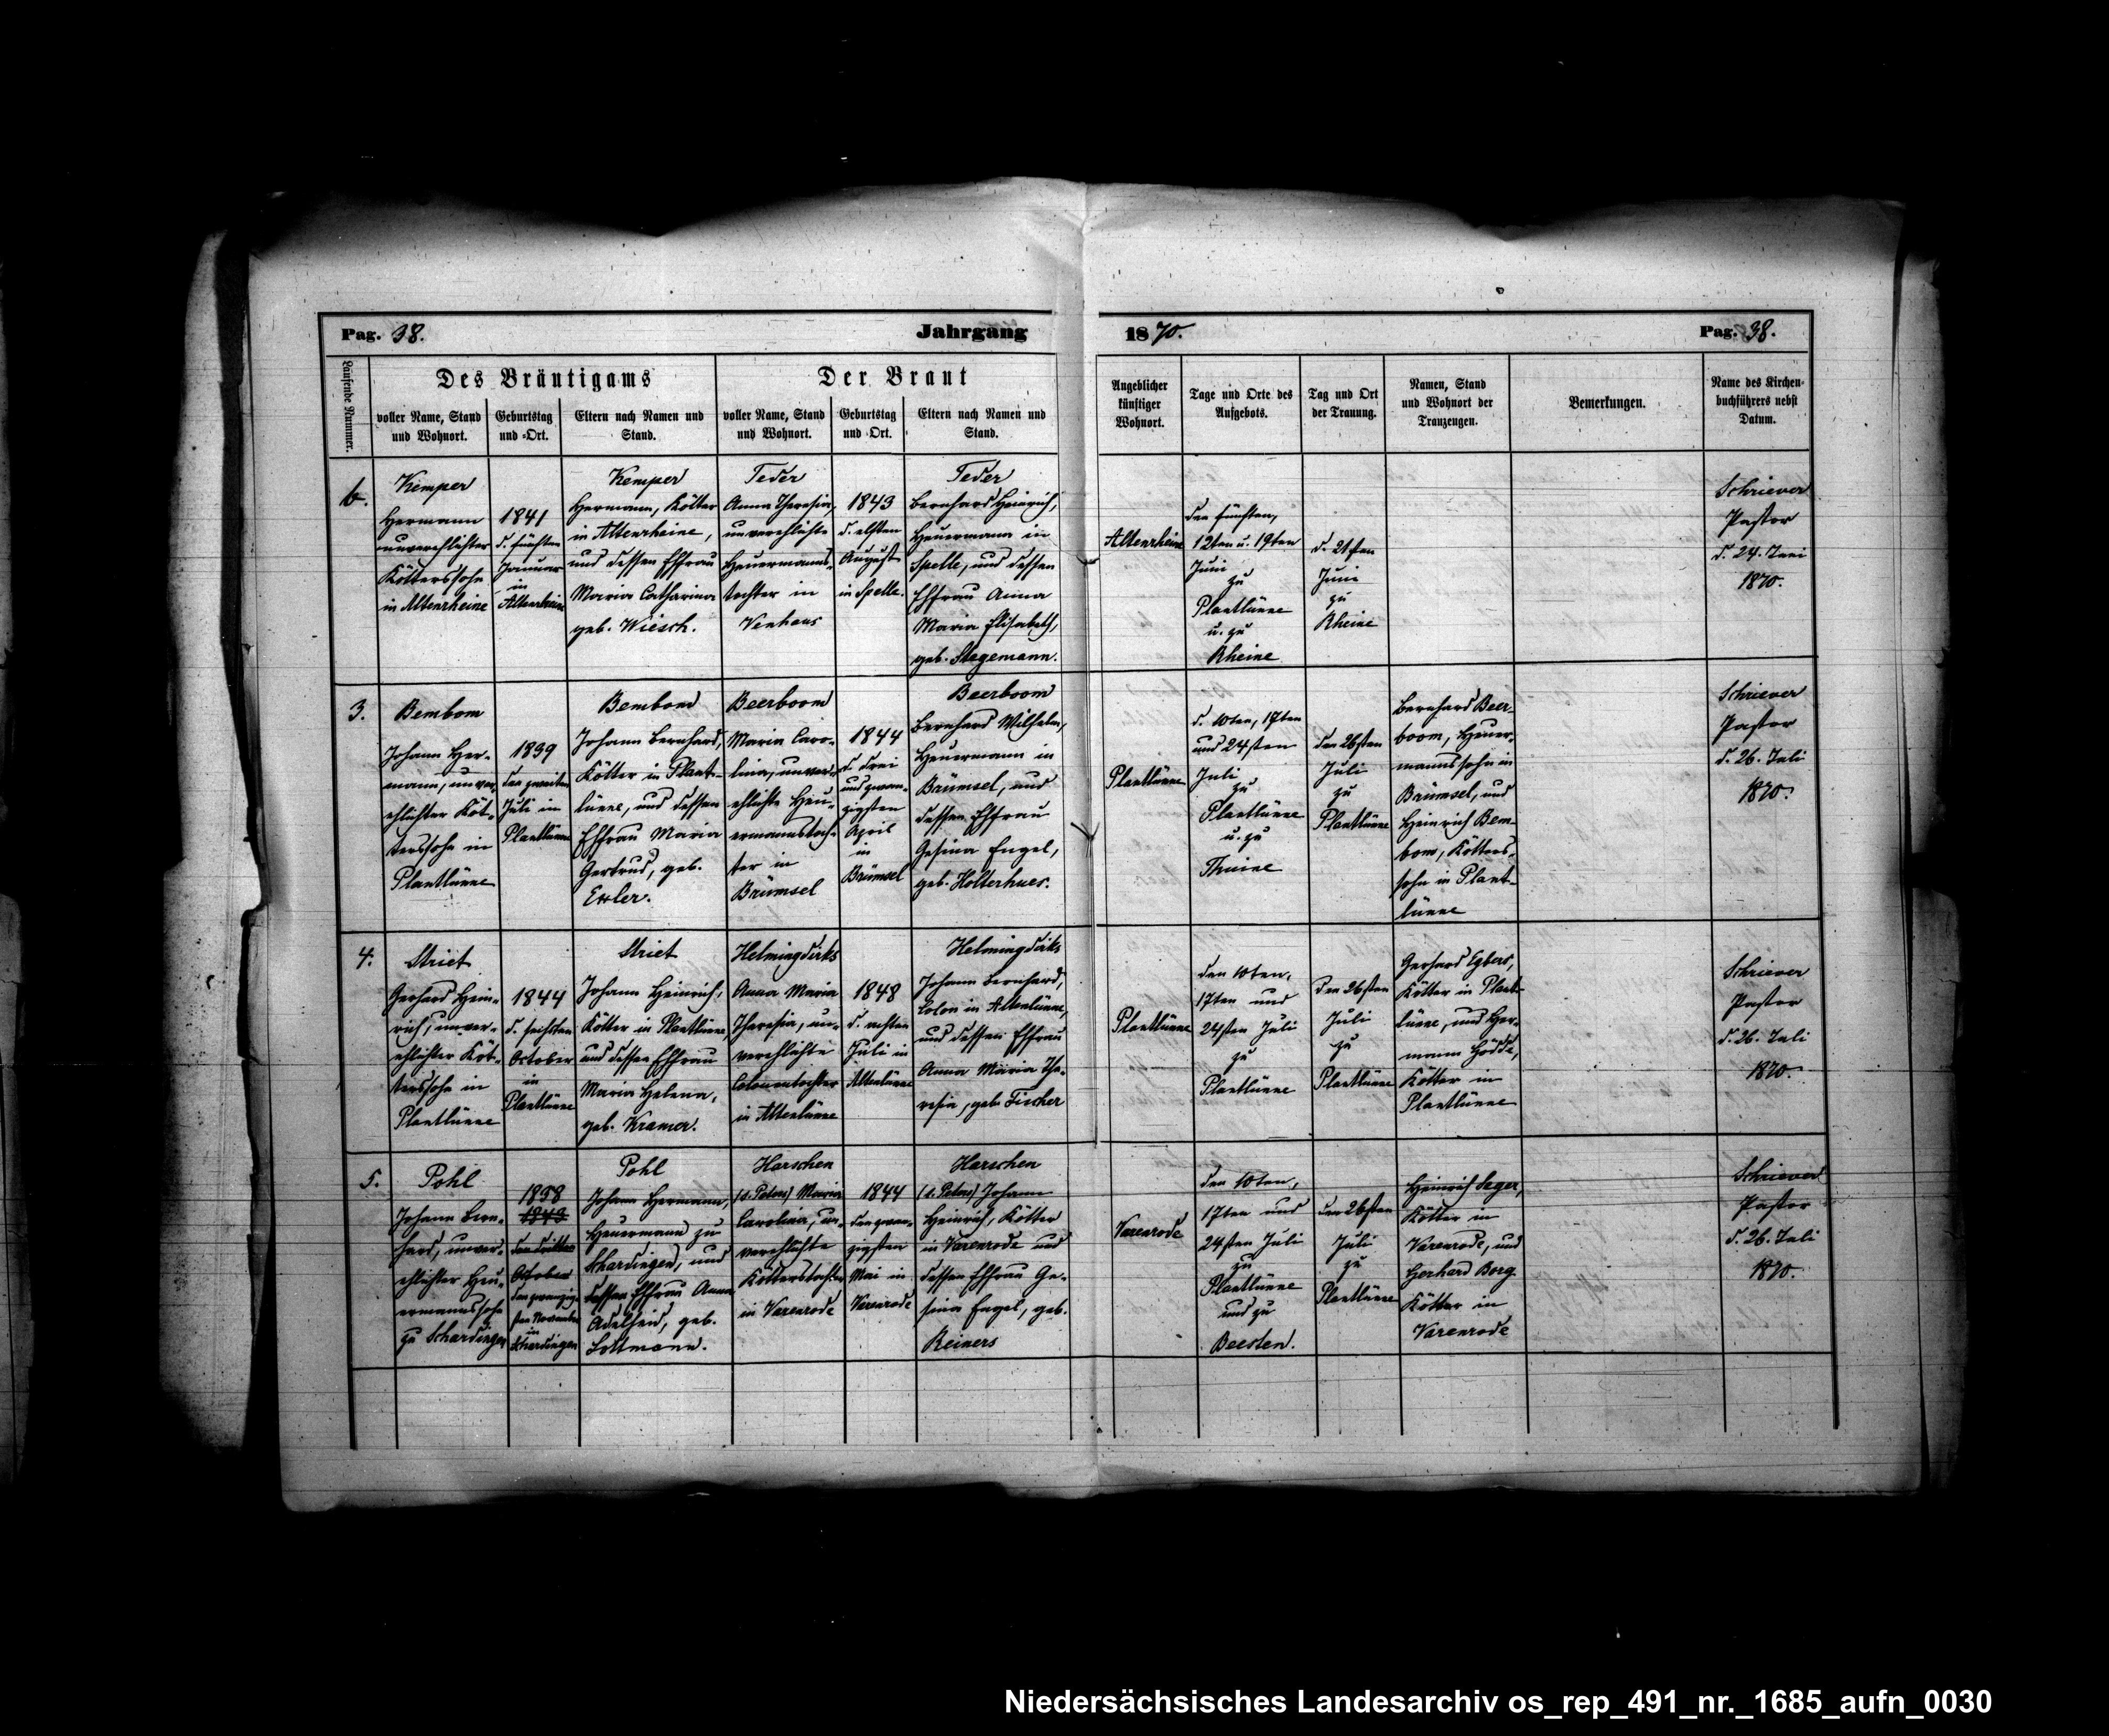 Pag. 38.
Jahrgang
1870.
Pag. 38.
Laufende Nummer.
Des Bräutigams
voller Name, Stand
und Wohnort.
Geburtstag
und Ort.
Eltern nach Namen und
Stand.
Der Braut
voller Name, Stand
und Wohnort.
Geburtstag
und Ort.
Eltern nach Namen und
Stand.
Angeblicher
künftiger
Wohnort.
Tage und Orte des
Aufgebots.
Tag und Ort
der Trauung.
Namen, Stand
und Wohnort der
Trauzeugen.
Bemerkungen.
Name des Kirchen-
buchführers nebst
Datum.
b.
Kemper
Hermann
unverehlichter
Kötterssohn
in Altenrheine
1841
d. fünften
Januar
in
Altenrheine
Kemper
Hermann, Kötter
in Altenrheine,
und dessen Ehfrau
Maria Catharina
geb. Wiesch.
Teder
Anna Theresia,
unverehlichte
Heuermanns-
tochter in
Venhaus
1843
d. elften
August
in Spelle.
Teder
Bernhard Heinrich,
Heuermann in
Spelle, und dessen
Ehfrau Anna
Maria Elisabeth,
geb. Stegemann.
Altenrheine
den fünften,
12ten u. 19ten
Juni
zu
Plantlünne
u. zu
Rheine
d. 21sten
Juni
zu
Rheine
Schriever
Pastor
d. 24. Juni
1870.
3.
Bembom
Johann Her-
mann, unver-
ehlichter Köt-
terssohn in
Plantlünne
1839
den zweiten
Juli in
Plantlünne
Bembom
Johann Bernhard,
Kötter in Plant-
lünne, und dessen
Ehfrau Maria
Gertrud, geb.
Beerboom
Maria Caro-
lina, unver-
ehlichte Heu-
ermannstoch-
ter in
Brümsel
1844
d. drei
und zwan-
zigsten
April
in
Brümsel
Beerboom
Bernhard Wilhelm,
Heuermann in
Brümsel, und
dessen Ehfrau
Gesina Engel,
geb. Holterhues.
Plantlünne
d. 10ten, 17ten
und 24sten
Juli
zu
Plantlünne
u. zu
Thuine
den 26sten
Juli
zu
Plantlünne
Bernhard Beer-
boom, Heuer-
mannssohn in
Brümsel, und
Heinrich Bem-
bom, Kötters-
sohn in Plant-
lünne
Schriever
Pastor
d. 26. Juli
1870.
4.
Striet
Gerhard Hein-
rich, unver-
ehlichter Köt-
terssohn in
Plantlünne
1844
d. sechsten
October
in
Plantlünne
Striet
Johann Heinrich,
Kötter in Plantlünne,
und dessen Ehfrau
Maria Helena,
geb. Kramer.
Helmingdirks
Anna Maria
Theresia, un-
verehlichte
Colonentochter
in Altenlünne
1848
d. achten
Juli in
Altenlünne
Helmingdirks
Johann Bernhard,
Colon in Altenlünne,
und dessen Ehfrau
Anna Maria The-
resia, geb. Fischer
Plantlünne
den 10ten,
17ten und
24sten Juli
zu
Plantlünne
den 26sten
Juli
zu
Plantlünne
Gerhard Egbers,
Kötter in Plant-
lünne, und Her-
mann Gödde,
Kötter in
Plantlünne
Schriever
Pastor
d. 26. Juli
1870.
5.
Pohl
Johann Bern-
hard, unver-
ehlichter Heu-
ermannssohn
zu Schardingen
1838
1843
den dritten
October
den zwanzig-
sten November
in
Schardingen
Pohl
Johann Hermann,
Heuermann zu
Schardingen, und
dessen Ehfrau Anna
Adelheid, geb.
Lottmann.
Harschen
(s. Peters) Maria
Carolina, un-
verehlichte
Kötterstochter
in Varenrode
1844
den zwan-
zigsten
Mai in
Varenrode
Harschen
(s. Peters) Johann
Heinrich, Kötter
in Varenrode und
dessen Ehfrau Ge-
sina Engel, geb.
Reiners
Varenrode
den 10ten,
17ten und
24sten Juli
zu
Plantlünne
und zu
Beesten.
den 26sten
Juli
zu
Plantlünne
Heinrich Seger,
Kötter in
Varenrode, und
Gerhard Borg
Kötter in
Varenrode
Schriever
Pastor
d. 26. Juli
1870.
Niedersächsisches Landesarchiv os_rep_491_nr._1685_aufn_0030